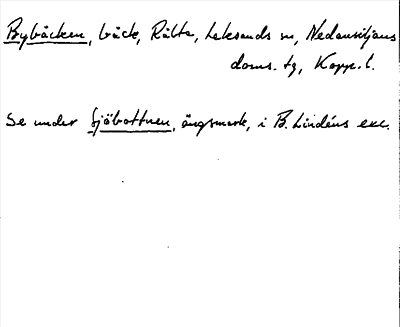 Bybäcken, bäck, Rälta, Leksands sn, Nedansiljans
doms. tg, Kopp. l.
Se under Sjöbottnen, ängsmark, i B. Lindéns exc.